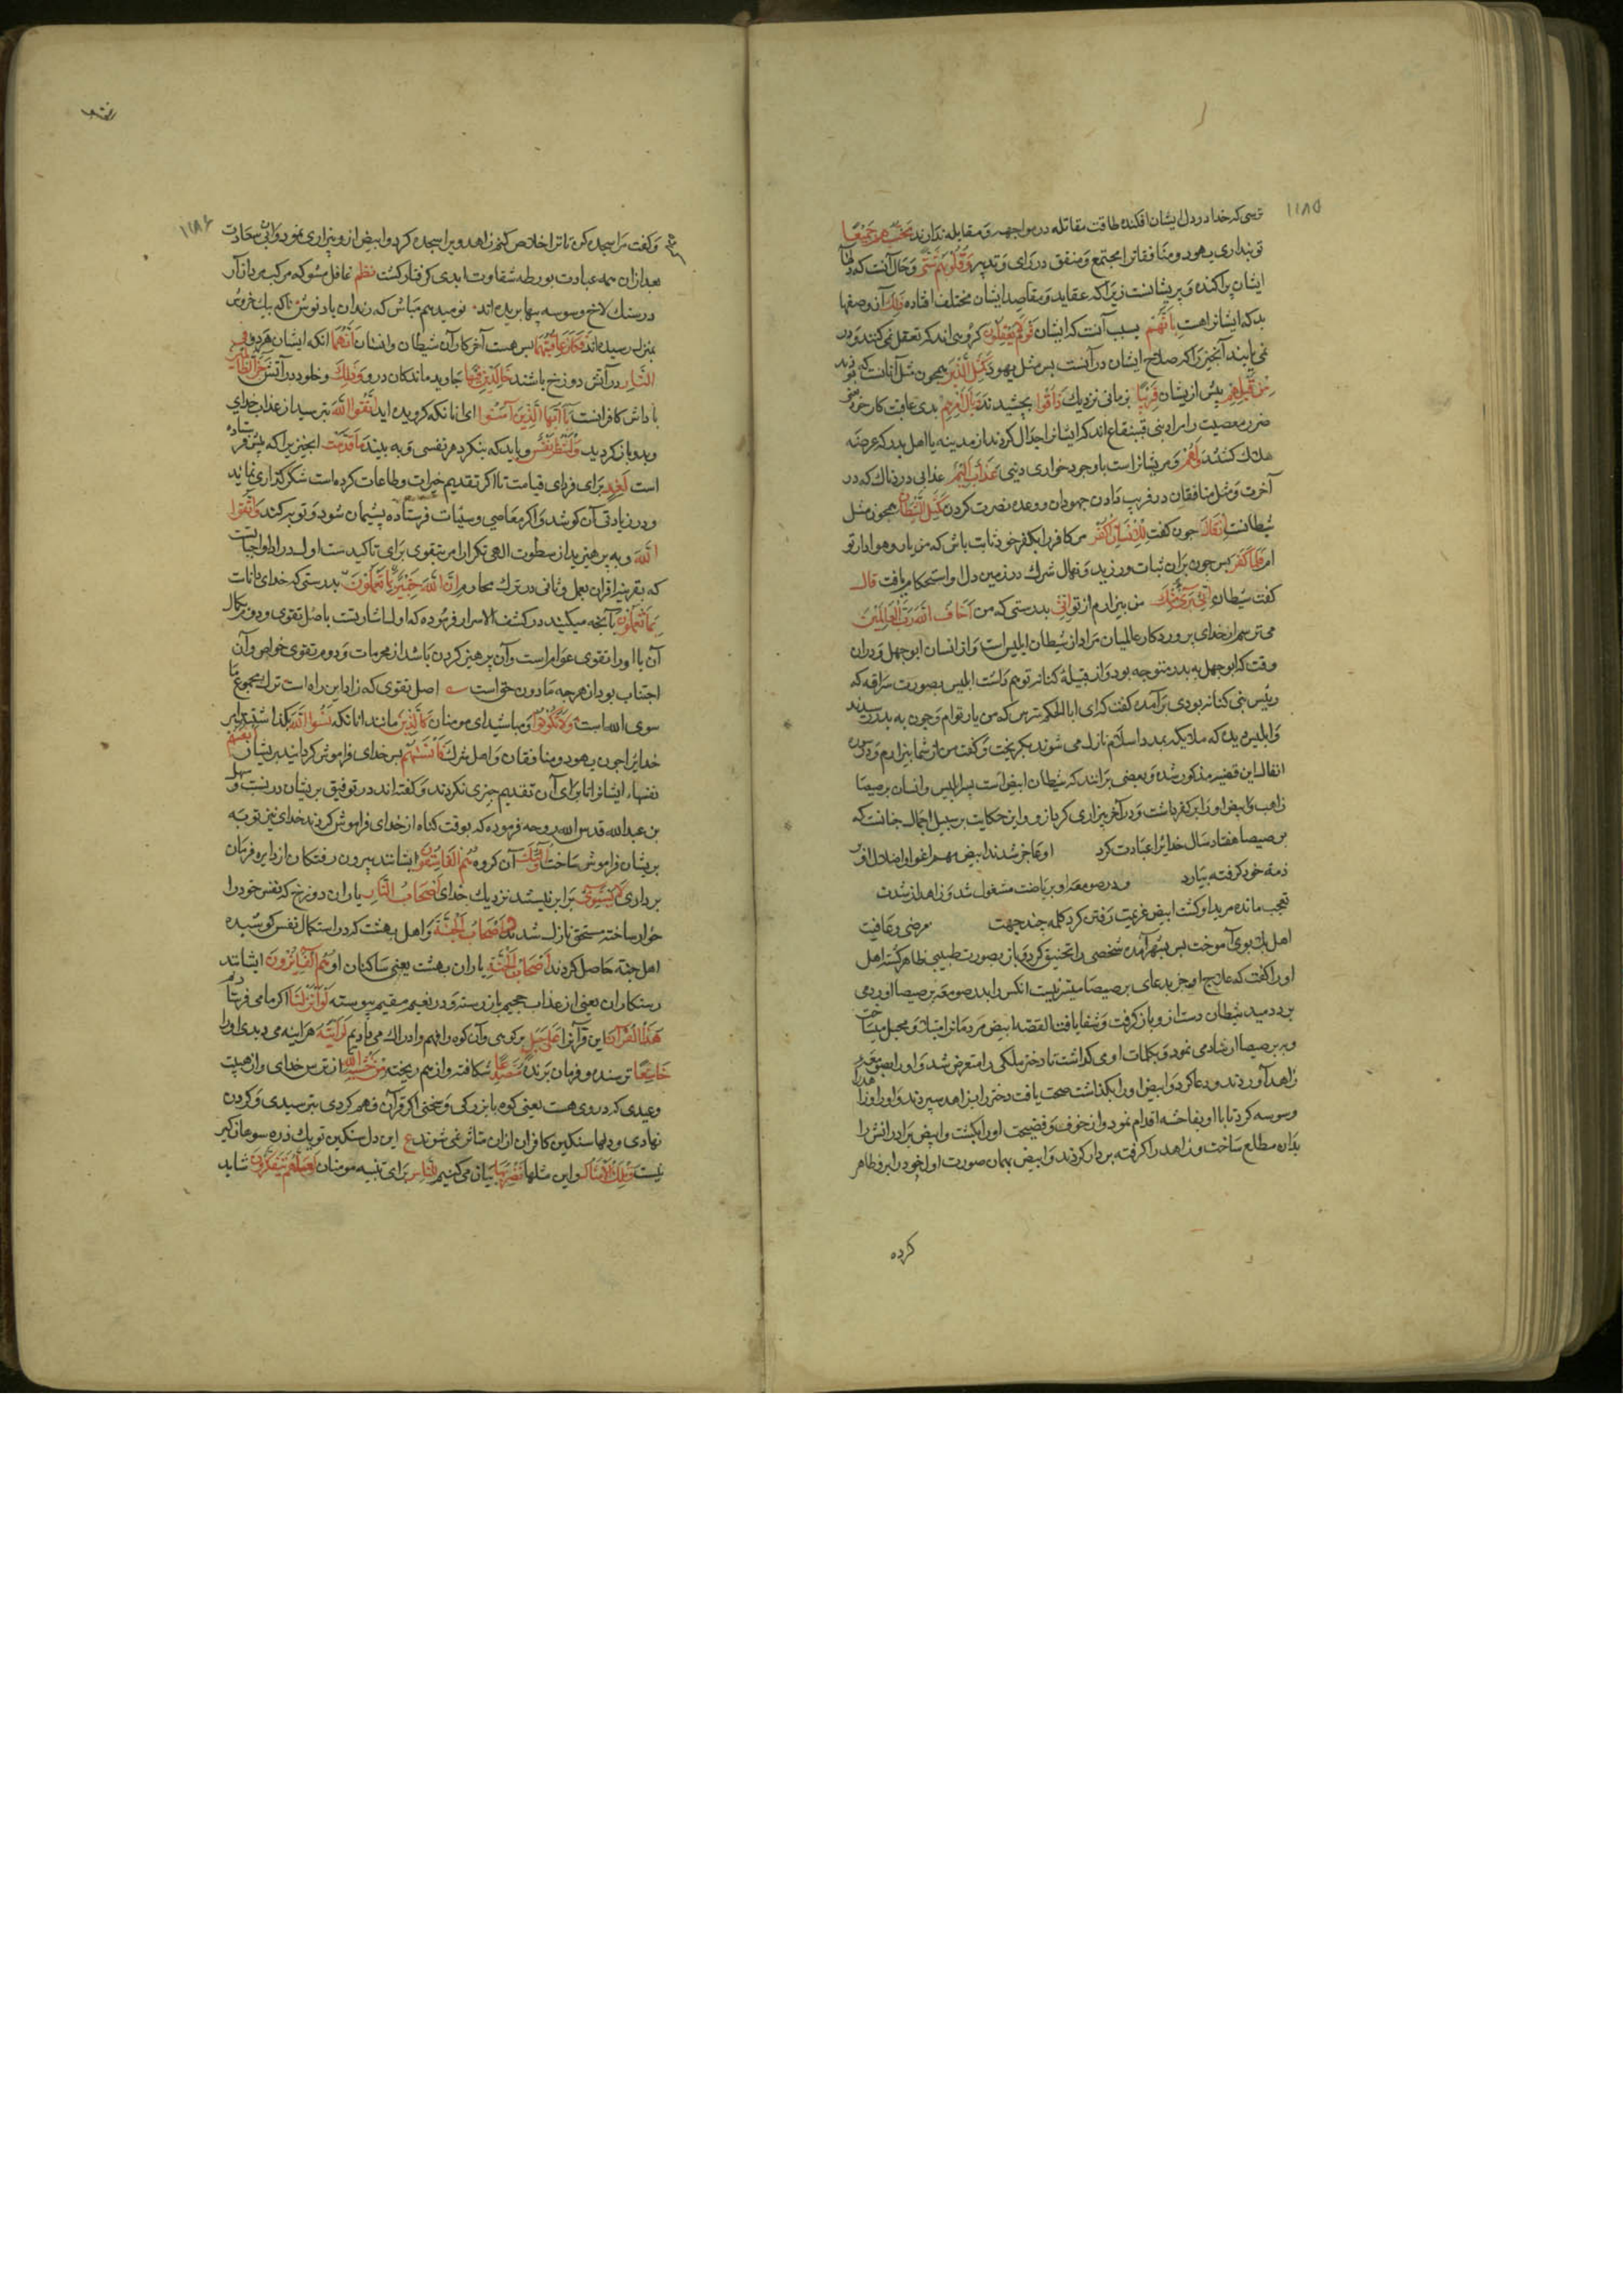 ۱۱۸۵
ترسی که خدا در دل ایشان افکنده طاقت مقاتله در مواجهه و مقابله ندارند تحسبهم جمیعا
تو پنداری یهود و منافقانرا مجتمع و متفق در رای و تدبیر و قلوبهم شتی و حال آنست که دلها
ایشان پراکنده و پریشانست زیرا که عقاید و مقاصد ایشان مختلف افتاده ذلک آن وصفها
بد که ایشانرا هست بانهم بسبب آنست که ایشان قوم لا یعقلون کروهی اند که تعقل نمی کنند و در
نمی یابند آنچیز را که صلاح ایشان در آنست پس مثل یهود کمثل الذین همچون مثل آنانست که بودند
من قبلهم پیش از یشان قریبا بزمانی نزدیک ذاقوا بچشیدند وبال امرهم بدی عاقبت کار خود یعنی
ضرر معصیت و مراد بنی قینقاع اند که ایشانرا اجلال کردند از مدینه یا اهل بدر که عرضه
هلاک کشتند ولهم و مر یشانراست با وجود خواری دنیی عذاب الیم عذابی دردناک که در
آخرت و مثل منافقان در فریب دادن جهودان و وعده نصرت کردن کمثل الشیطان همچون مثل
شیطانست اذ قال چون کفت للانسان اکفر مر کافر را بکفر خود ثابت باش که من یار و هوادار تو
ام فلما کفر پس چون بران ثبات ورزید و نهال شرک در زمین دل او استحکام یافت قال
کفت شیطان انی بریء منک من بیزارم از تو انی بدرستی که من اخاف الله رب العالمین
می ترسم از خدای پروردکار عالمیان مراد از شیطان ابلیس است و از انسان ابوجهل و دران
وقت که ابوجهل به بدر متوجه بود و از قبیلهٔ کنانه توهم داشت ابلیس بصورت سراقه که
رئیس بنی کنانه بودی برآمده کفت که ای ابا الحکم مترس که من یار توام و چون به بدر رسیدند
و ابلیس دید که ملایکه بمدد اسلام نازل می شوند بکریخت و کفت من از شما بیزارم و در سوره
انفال این قضیه مذکور شده و بعضی برانند که شیطان ابیض است پسر ابلیس و انسان برصیصا
زاهب و ابیض او را بر کفر داشت و در آخر بیزاری کرد ازو و این حکایت بر سبیل اجمال چنانست که
برصیصا هفتاد سال خدایرا عبادت کرد او عاجز شدند ابیض مهم اغوا و اضلال او بر
ذمه خود کرفته بیارد و در صومعه او بریاضت مشغول شد و زاهد از شدت
تعجب مانده مرید او کشت ابیض عزیمت رفتن کرد کلمه چند جهت مرضی و عافیت
اهل بلا بوی آموخت پس بشهر آمده شخصی را تخنیق کرد و باز بصورت طبیبی ظاهر کشته اهل
او را کفت که علاج او جز بدعای برصیصا میسر نیست انکس را بدر صومعه برصیصا آورده می
برد دمید شیطان دست ازو باز کرفت و شفا یافت القصه ابیض مردمانرا مبتلا و مخبل میساخت
و به برصیصا ارشاد می نمود و بکلمات اوی کذاشت تا دختر ملکی را متعرض شد و او را بصومعه
زاهد آوردند و دعا کرد و ابیض او را بکذاشت صحت یافت دختر را بزاهد سپردند و او را وزا
وسوسه کرد تا با او بفاحشه اقدام نمود و از خوف و فضیحت او را بکشت و ابیض برادرانش را
بدان مطلع ساخت و زاهد را کرفته بر دار کردند و ابیض بهمان صورت اول خود را برو ظاهر
کرده
۱۱۸۶
و کفت مرا سجده کن تا ترا خلاص کنم زاهد ویرا سجده کرد و ابیض ازو بیزاری نمود
بعد ازان همه عبادت بورطه شقاوت ابدی کرفتار کشت نظم غافل مشو که مرکب مردان
در سنک لاخ وسوسه پیها بریده اند نومید هم مباش که رندان باده نوش ناکه بیک خروش
بمنزل رسیده اند فکان عاقبتهما پس هست آخر کار آن شیطان و انسان انهما آنکه ایشان هر دو فی
النار در آتش دوزخ باشند خالدین فیها جاوید ماندکان درو وذلک و خلود در آتش جزاء الظالمین
پاداش کافرانست یا ایها الذین آمنوا ای آنانکه کرویده اید اتقوا الله بترسید از عذاب خدای
وبدو باز کردید ولتنظر نفس و باید که بنکرد هر نفسی و به بیند ما قدمت آنچیز را که پیش فرستاده
است لغد برای فردای قیامت تا اکر تقدیم خیرات و طاعات کرده است شکر کزاری نماید
و در زیادتی آن کوشد و اکر معاصی و سیئات فرستاده پشیمان شود و توبه کند واتقوا
الله و به پرهیزید از سطوت الهی تکرار امر بتقوی برای تاکیدست اول در ادا واجباتست
که بقرینه اقران بعمل و ثانی در ترک محارم ان الله خبیر بما تعملون بدرستی که خدای داناست
بما تعملون بآنچه میکنید در کشف الاسرار فرموده که اول اشارتست باصل تقوی و دوم بکمال
آن یا اول تقوی عوام است و آن پرهیز کردن باشد از محرمات و دوم تقوی خواص و آن
اجتناب بود از هرچه ما دون حق است اصل تقوی که زاد این راه است ترک مجموع ما
سوی الله است ولا تکونوا و مباشید ای مومنان کالذین مانند آنانکه نسوا الله بکذاشتند
خدایرا چون یهود و منافقان و اهل شرک فانساهم پس خدای فراموش کردانید بریشان انفسهم
نفسهاء ایشانرا تا برای آن تقدیم چیزی نکردند و کفته اند در توفیق بر یشان در بست و سهل
بن عبد الله قدس الله روحه فرموده که بوقت کناه از خدای فراموش کردند خدای نیز توبه
بریشان فراموش ساخت اولئک آن کروه هم الفاسقون ایشانند بیرون رفتکان از دایره فرمان
برداری لا یستوی برابر نیستند نزدیک خدای اصحاب النار یاران دوزخ که نفس خود را
خوار ساخته مستحق نار شدند واصحاب الجنة و اهل بهشت که در استکمال نفس کوشیده
اهل جنة حاصل کردند اصحاب الجنة یاران بهشت یعنی ساکنان او هم الفائزون ایشانند
رستکاران یعنی از عذاب جحیم باز رسته و در نعیم مقیم پیوسته لو انزلنا اکر ما می فرستادیم
هذا القرآن این قرآنرا علی جبل بر کوهی و آن کوه را فهم و ادراک می دادیم لرایته هرآینه می دیدی او را
خاشعا ترسنده و فرمان برنده متصدعا شکافته و از هم ریخته من خشیة الله از ترس خدای و از هیبت
وعیدی که در وی هست یعنی کوه با بزرکی و سختی اکر قرآن فهم کردی بترسیدی و کردن
نهادی و دلها سنکین کافران ازان متاثر نمی شوند ع این دل سنکین تو یک ذره
نیست وتلک الامثال و این مثلها نضربها بیان می کنیم للناس برای تنبیه مومنان لعلهم یتفکرون شاید